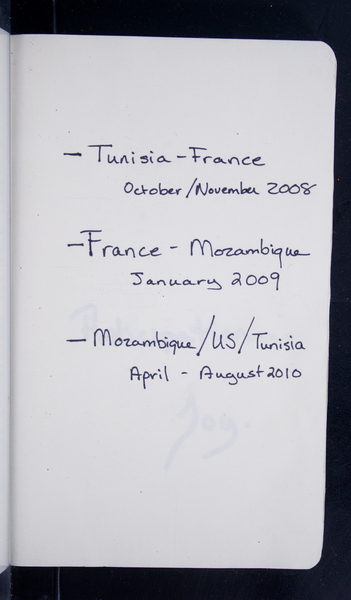 – Tunisia – France
October/November 2008
– France – Mozambique
January 2009
– Mozambique/US/Tunisia
April – August 2010